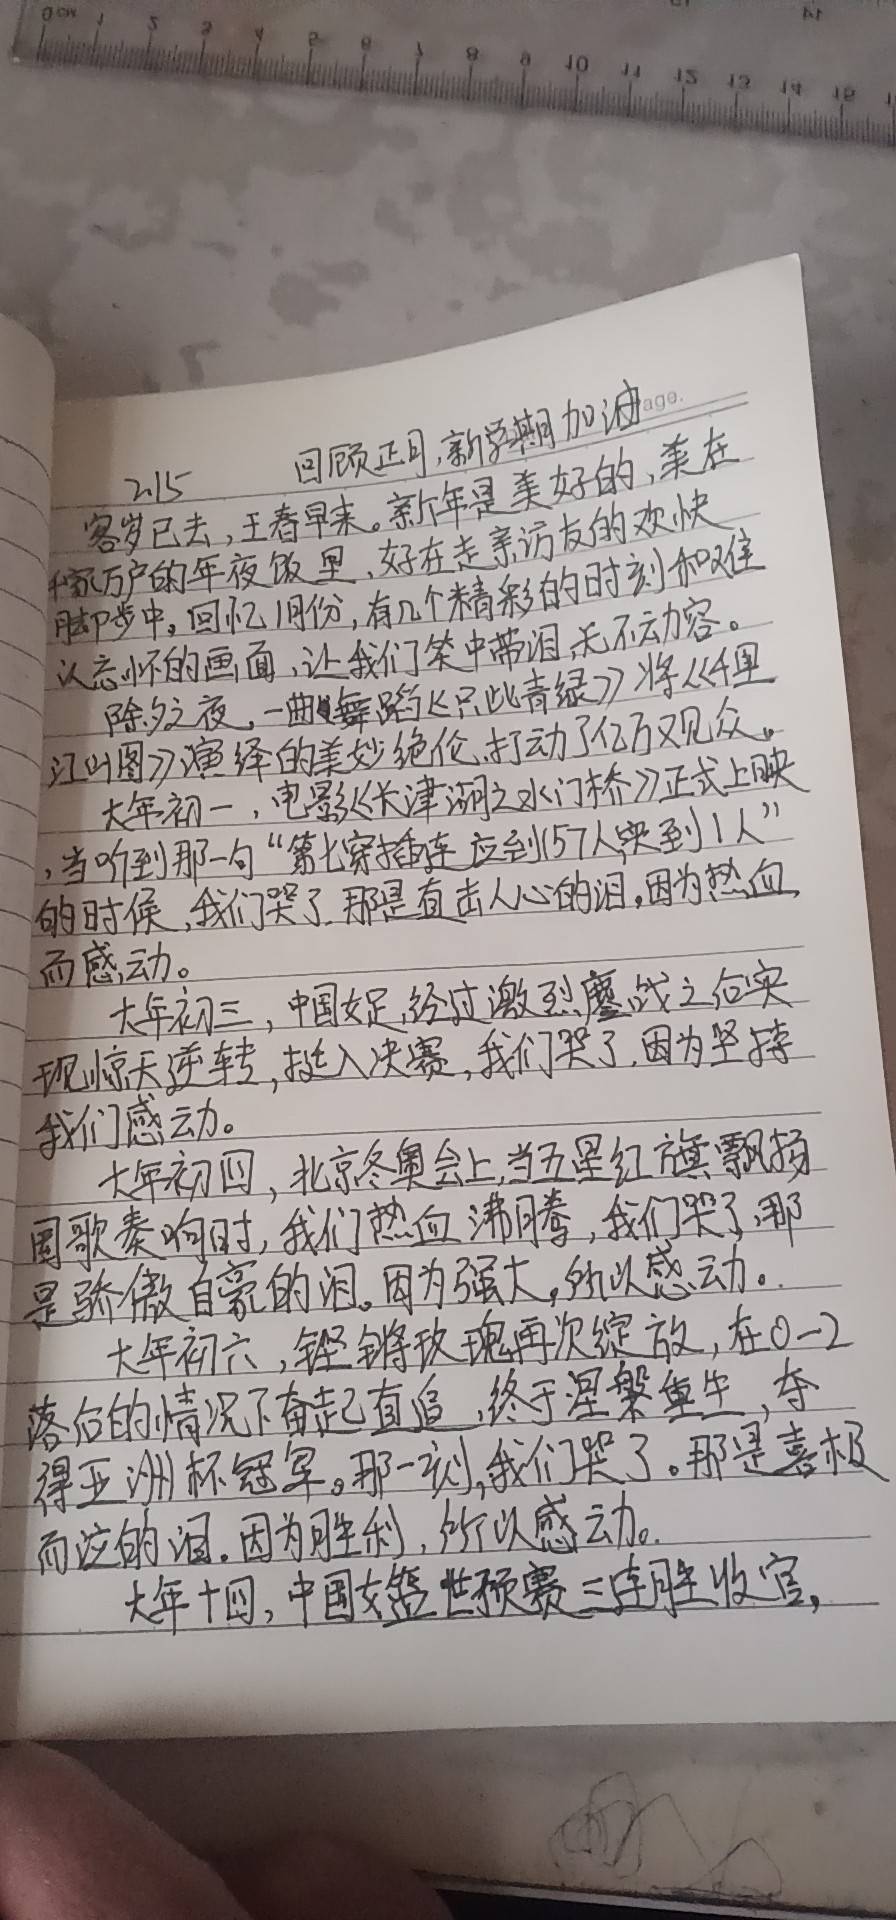 0cm 1 2 3 4 5 6 7 8 9 10 11 12 13 14 15
age.
回顾正月,新学期加油
2.15
客岁已去,王春早来。新年是美好的,美在
千家万户的年夜饭里,好在走亲访友的欢快
脚步中。回忆1月份,有几个精彩的时刻和难
以忘怀的画面,让我们笑中带泪,无不动容。
除夕之夜,一曲舞蹈《只此青绿》将《千里
江山图》演绎的美妙绝伦,打动了亿万观众。
大年初一,电影《长津湖之水门桥》正式上映
,当听到那一句“第七穿插连应到157人,实到1人”
的时候,我们哭了,那是直击人心的泪。因为热血,
而感动。
大年初三,中国女足,经过激烈鏖战之后实
现惊天逆转,挺入决赛,我们哭了,因为坚持
我们感动。
大年初四,北京冬奥会上,当五星红旗飘扬
国歌奏响时,我们热血沸腾,我们哭了,那
是骄傲自豪的泪。因为强大,所以感动。
大年初六,铿锵玫瑰再次绽放,在0-2
落后的情况下奋起直追,终于涅槃重生,夺
得亚洲杯冠军。那一刻,我们哭了。那是喜极
而泣的泪。因为胜利,所以感动。
大年十四,中国女篮世预赛三连胜收官,